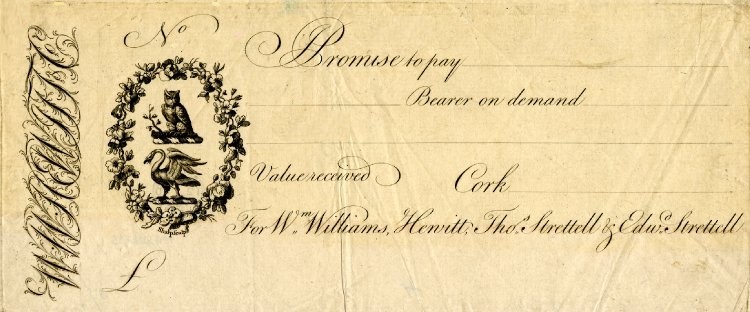 No
I Promise to pay
Bearer on demand
Value received Cork
For Wm. Williams, Hewitt, Thos. Strettell & Edwd. Strettell
£